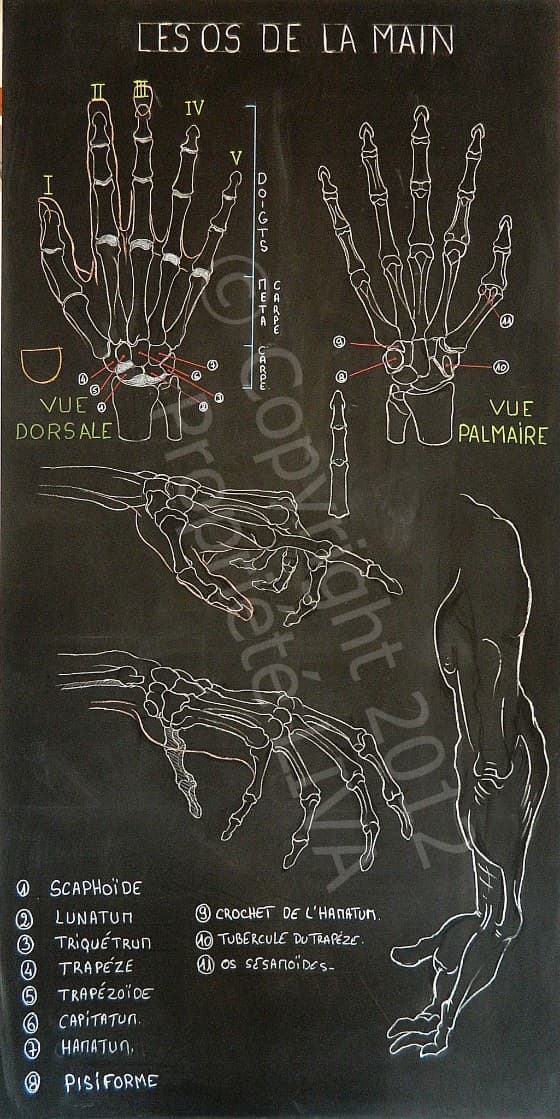 LES OS DE LA MAIN
I
II
III
IV
V
DOIGTS
META
CARPE
CARPE
4
5
1
7
6
3
2
VUE
DORSALE
9
8
11
10
VUE
PALMAIRE
© Copyright 2012
Propriété LIVA
1 SCAPHOÏDE
2 LUNATUM
3 TRIQUÉTRUM
4 TRAPÉZE
5 TRAPÉZOÏDE
6 CAPITATUM.
7 HAMATUM.
8 PISIFORME
9 CROCHET DE L'HAMATUM.
10 TUBERCULE DU TRAPÉZE.
11 OS SÉSAMOÏDES_